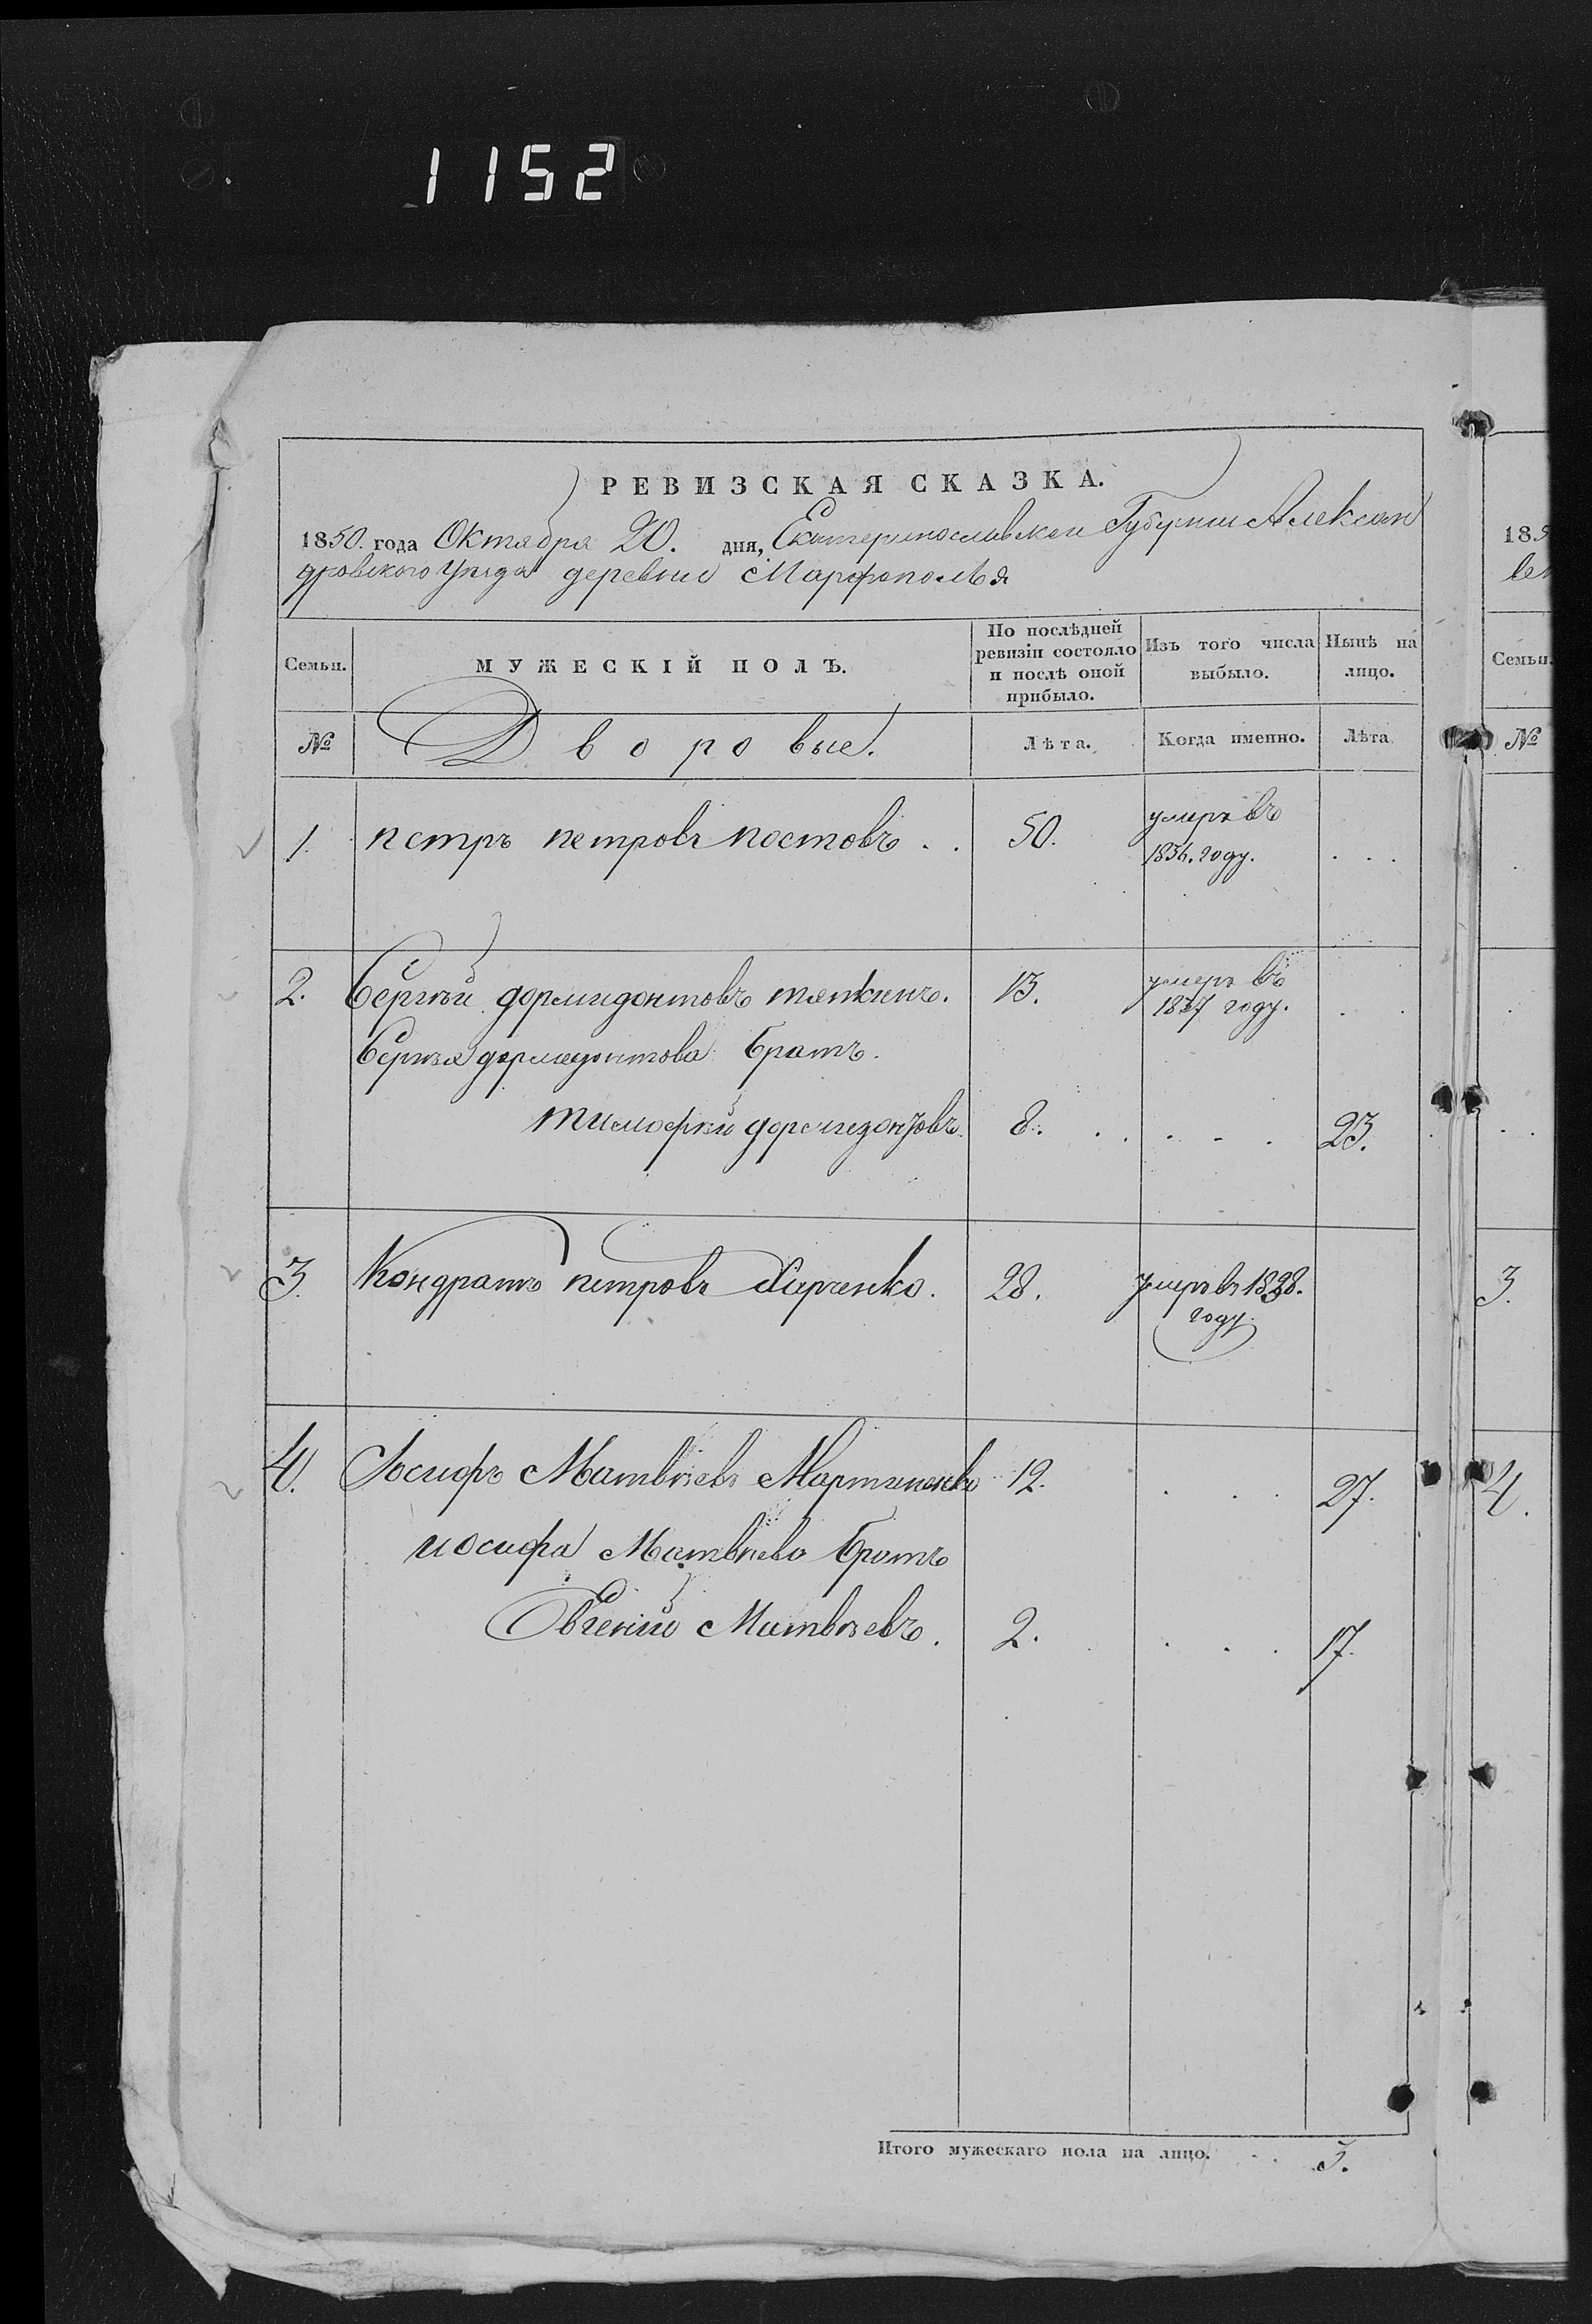 1152
РЕВИЗСКАЯ СКАЗКА.
1850. года Октября 20. дня, Екатеринославской Губернии Алексан
дровского Уѣзда деревни Марфополья
Семьи.
МУЖЕСКІЙ ПОЛЪ.
По послѣдней ревизіи состояло и послѣ оной прибыло.
Изъ того числа выбыло.
Нынѣ на лицо.
№ Дворовые. Лѣта. Когда именно. Лѣта
1. петръ петровъ постовъ . . 50. умеръ въ
1836. году. . . .
2. Сергѣй дормидонтовъ тяпкинъ. 13. умеръ въ
1837 году. . .
Сергѣя дормедонтова братъ.
тимофѣй дормидонтовъ. 8. . . . . 23.
3. Кондратъ петровъ Харченко. 28. умеръ въ 1838.
году.
4. Іосифъ Матвѣевъ Мартыненко 12. . . . 27.
иосифа Матвѣева братъ
Евгений Матвѣевъ. 2. . . . 17.
Итого мужескаго пола на лицо. . . 3.
185
Семьи.
№
3.
4.